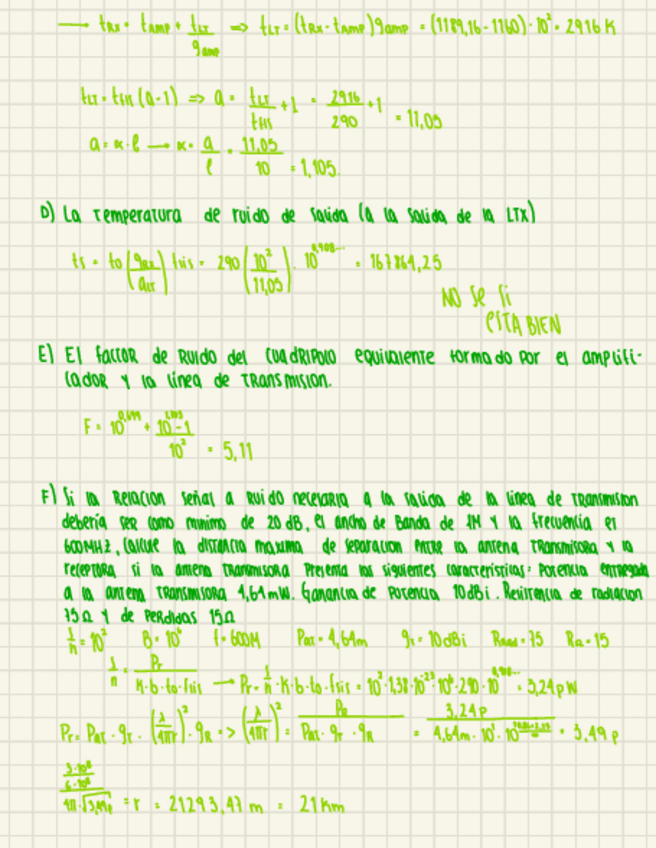 → t_RX = t_AMP + t_LT / g_amp ⇒ t_LT = (t_RX - t_AMP) g_amp = (1189,16 - 1160) · 10² = 2916 K
t_LT = t_FIS (a-1) ⇒ a = t_LT / t_FIS + 1 = 2916 / 290 + 1 = 11,05
a = α · ℓ → α = a / ℓ = 11,05 / 10 = 1,105
D) La temperatura de ruido de salida (a la salida de la LTX)
ts = to (g_RX / a_LT) fsis = 290 (10² / 11,05) · 10 = 167864,25
NO se si
ESTA BIEN
E) El factor de Ruido del cuadripolo equivalente formado por el amplifi-
cador y la línea de transmision.
F = 10 + 10 - 1 / 10² = 5,11
F) Si la Relacion señal a ruido necesaria a la salida de la linea de transmision
debería ser como minimo de 20 dB, el ancho de Banda de 1M y la frecuencia es
600MHz, calcule la distancia maxima de separacion entre la antena transmisora y la
receptora si la antena transmisora Presenta las siguientes caracteristicas: Potencia entregada
a la antena transmisora 4,64mW. Ganancia de Potencia 10dBi. Resistencia de radiacion
75Ω y de Perdidas 15Ω
= 10² B = 10⁶ f = 600M Pat = 4,64m g_T = 10dBi R_rad = 75 R_Ω = 15
= Pr / K·b·to·fsis → Pr = · K·b·to·fsis = 10² · 1,38 · 10⁻²³ · 10⁶ · 290 · 10 = 3,24pW
Pr = Pat · g_T · (λ / 4πr)² · g_R => (λ / 4πr)² = / Pat · g_T · g_R = 3,24p / 4,64m · 10¹ · 10 = 3,49 p
3·10⁸ / 6·10⁸ / 4π·√3,49p = r = 21293,47 m = 21 Km